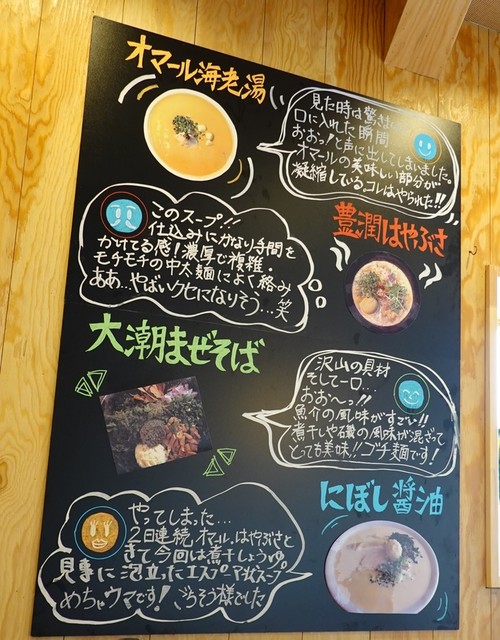 オマール海老湯
見た時は驚き
口に入れた瞬間
おおっ!と声に出してしまいました。
オマールの美味しい部分が
凝縮している。コレはやられた!!
このスープ!!
仕込みにかなり時間を
かけてる感!濃厚で複雑・
モチモチの中太麺によく絡み
ああ…やばいクセになりそう…笑
豊潤はやぶさ
大潮まぜそば
沢山の具材
そして一口…
おお〜っ!!
魚介の風味がすごい!!
煮干しや磯の風味が混ざって
とっても美味!!ゴチ麺です!
にぼし醤油
やってしまった…
2日連続オマール、はやぶさと
きて今回は煮干しょうゆ
見事に泡立ったエスプーマ状スープ
めちゃウマです!ごちそう様でした